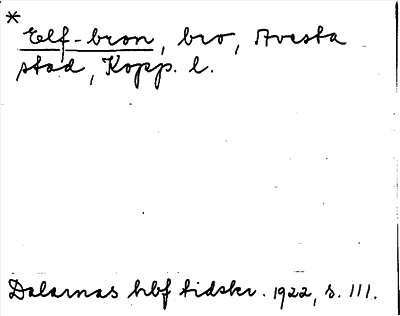 *
Elf-bron, bro, Avesta
stad, Kopp. l.
Dalarnas hbf tidskr. 1922, s. 111.